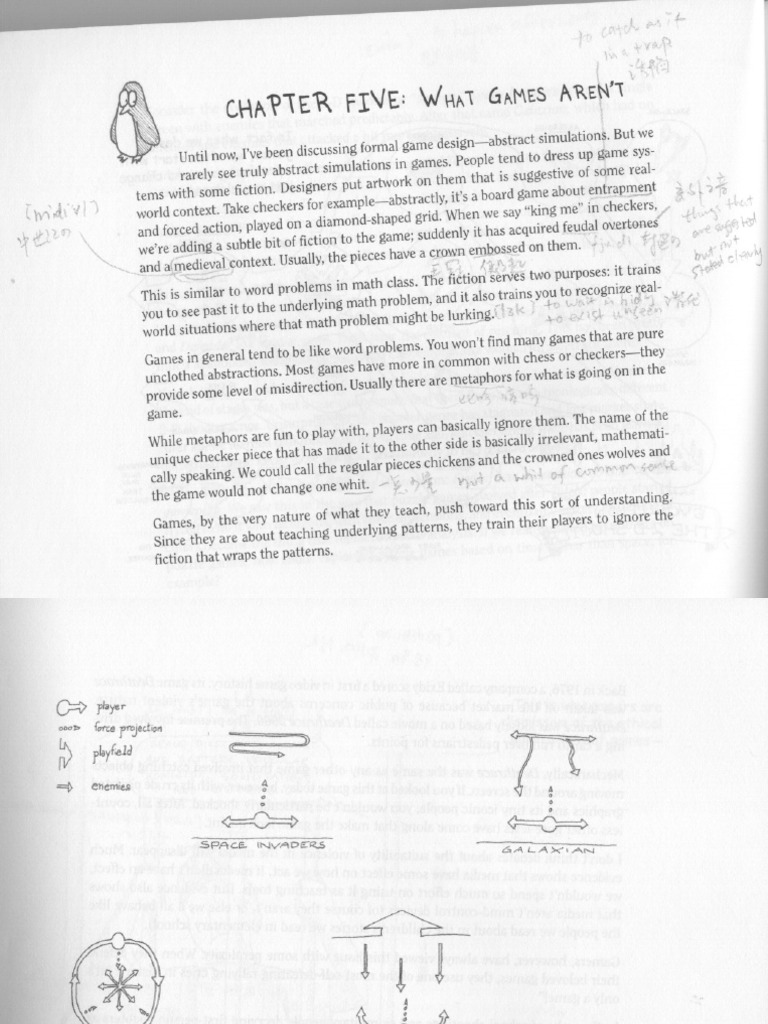 to catch as if
in a trap
CHAPTER FIVE: WHAT GAMES AREN'T
Until now, I've been discussing formal game design—abstract simulations. But we
rarely see truly abstract simulations in games. People tend to dress up game sys-
tems with some fiction. Designers put artwork on them that is suggestive of some real-
world context. Take checkers for example—abstractly, it's a board game about entrapment
and forced action, played on a diamond-shaped grid. When we say "king me" in checkers,
we're adding a subtle bit of fiction to the game; suddenly it has acquired feudal overtones
and a medieval context. Usually, the pieces have a crown embossed on them.
中世纪的
things that
are suggested
but not
stated clearly
This is similar to word problems in math class. The fiction serves two purposes: it trains
you to see past it to the underlying math problem, and it also trains you to recognize real-
world situations where that math problem might be lurking.
to exist unseen
Games in general tend to be like word problems. You won't find many games that are pure
unclothed abstractions. Most games have more in common with chess or checkers—they
provide some level of misdirection. Usually there are metaphors for what is going on in the
game.
While metaphors are fun to play with, players can basically ignore them. The name of the
unique checker piece that has made it to the other side is basically irrelevant, mathemati-
cally speaking. We could call the regular pieces chickens and the crowned ones wolves and
the game would not change one whit.
not a whit of common sense
Games, by the very nature of what they teach, push toward this sort of understanding.
Since they are about teaching underlying patterns, they train their players to ignore the
fiction that wraps the patterns.
player
force projection
playfield
enemies
SPACE INVADERS
GALAXIAN